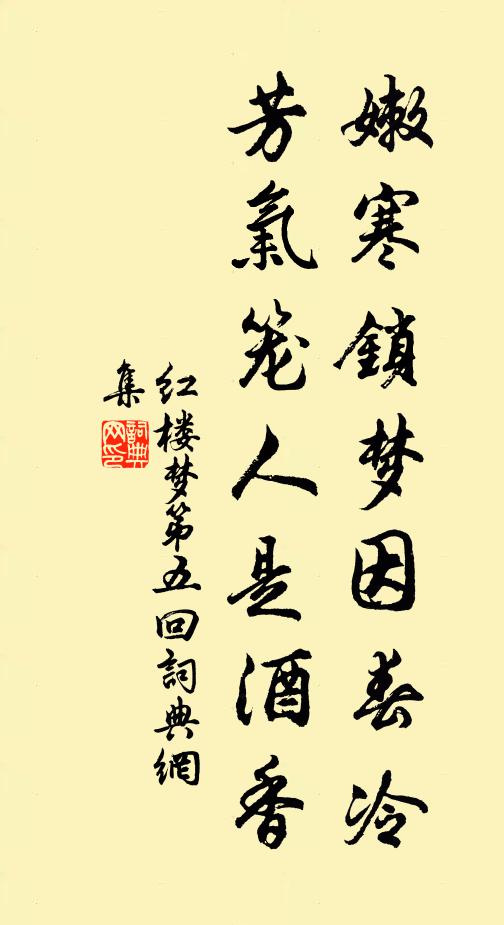 嫩寒鎖梦因春冷
芳氣笼人是酒香
红楼梦第五回詞典網
集
詞典
网印